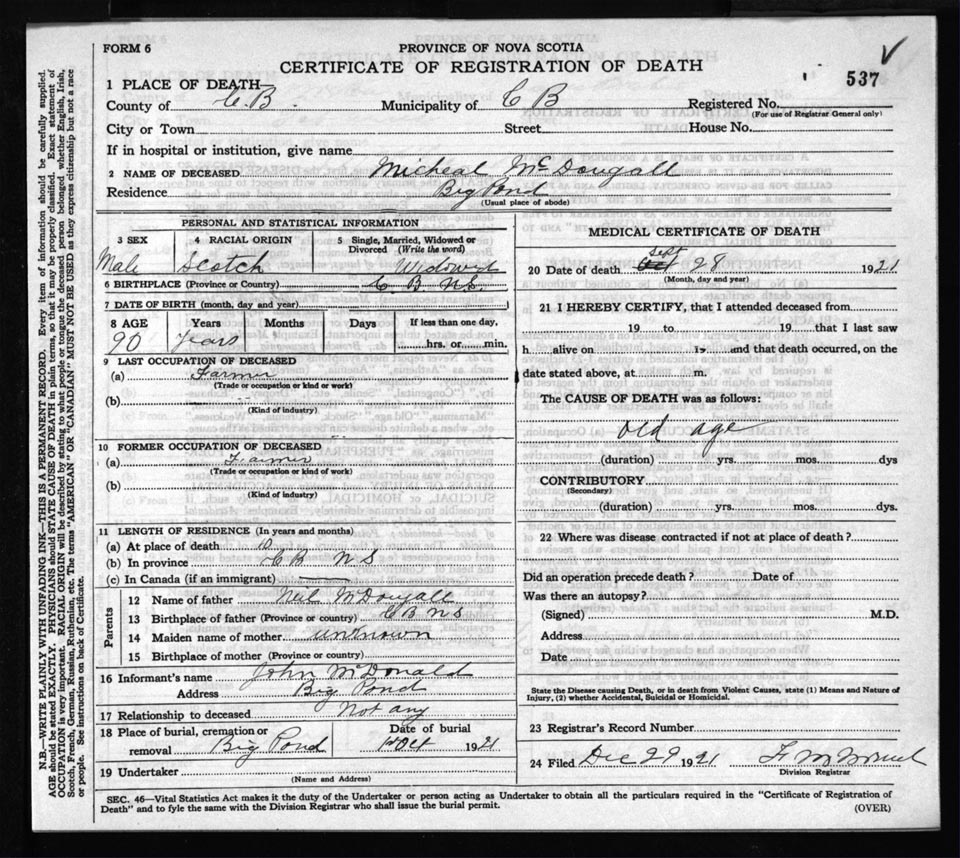 FORM 6
PROVINCE OF NOVA SCOTIA
CERTIFICATE OF REGISTRATION OF DEATH
537
1 PLACE OF DEATH—
County of C. B. Municipality of C B Registered No.
(For use of Registrar General only)
City or Town Street House No.
If in hospital or institution, give name
2 NAME OF DECEASED Micheal McDougall
Residence Big Pond
(Usual place of abode)
PERSONAL AND STATISTICAL INFORMATION
3 SEX 4 RACIAL ORIGIN 5 Single, Married, Widowed or Divorced (Write the word)
Male Scotch Widowed
6 BIRTHPLACE (Province or Country) C. B N.S.
7 DATE OF BIRTH (month, day and year)
8 AGE Years Months Days If less than one day,
90 years hrs. or min.
9 LAST OCCUPATION OF DECEASED
(a) Farmer
(Trade or occupation or kind or work)
(b)
(Kind of industry)
10 FORMER OCCUPATION OF DECEASED
(a) Farmer
(Trade or occupation or kind or work)
(b)
(Kind of industry)
11 LENGTH OF RESIDENCE (In years and months)
(a) At place of death
(b) In province C B N S
(c) In Canada (if an immigrant)
Parents
12 Name of father Neil McDougall
13 Birthplace of father (Province or country) C B N S
14 Maiden name of mother unknown
15 Birthplace of mother (Province or country)
16 Informant's name John McDonald
Address Big Pond
17 Relationship to deceased Not any
18 Place of burial, cremation or removal Big Pond Date of burial 1 Oct 1921
19 Undertaker
(Name and Address)
MEDICAL CERTIFICATE OF DEATH
20 Date of death Sept 28 1921
(Month, day and year)
21 I HEREBY CERTIFY, that I attended deceased from
19 to 19 that I last saw
h alive on 19 and that death occurred, on the
date stated above, at m.
The CAUSE OF DEATH was as follows:
old age
(duration) yrs. mos. dys
CONTRIBUTORY
(Secondary)
(duration) yrs. mos. dys
22 Where was disease contracted if not at place of death?
Did an operation precede death? Date of
Was there an autopsy?
(Signed) M.D.
Address
Date
State the Disease causing Death, or in death from Violent Causes, state (1) Means and Nature of
Injury, (2) whether Accidental, Suicidal or Homicidal.
23 Registrar's Record Number
24 Filed Dec 29 1921
Division Registrar
SEC. 46—Vital Statistics Act makes it the duty of the Undertaker or person acting as Undertaker to obtain all the particulars required in the "Certificate of Registration of
Death" and to fyle the same with the Division Registrar who shall issue the burial permit.
(OVER)
N.B.—WRITE PLAINLY WITH UNFADING INK—THIS IS A PERMANENT RECORD. Every item of information should be carefully supplied.
AGE should be stated EXACTLY. PHYSICIANS should STATE CAUSE OF DEATH in plain terms, so that it may be properly classified. Exact statement of
OCCUPATION is very important. RACIAL ORIGIN will be described by stating to what people or tongue the deceased person belonged whether English, Irish,
Scotch, French, German, Russian, Ruthenian, etc. The terms "AMERICAN" OR "CANADIAN" MUST NOT BE USED as they express citizenship but not a race
or people. See instructions on back of Certificate.